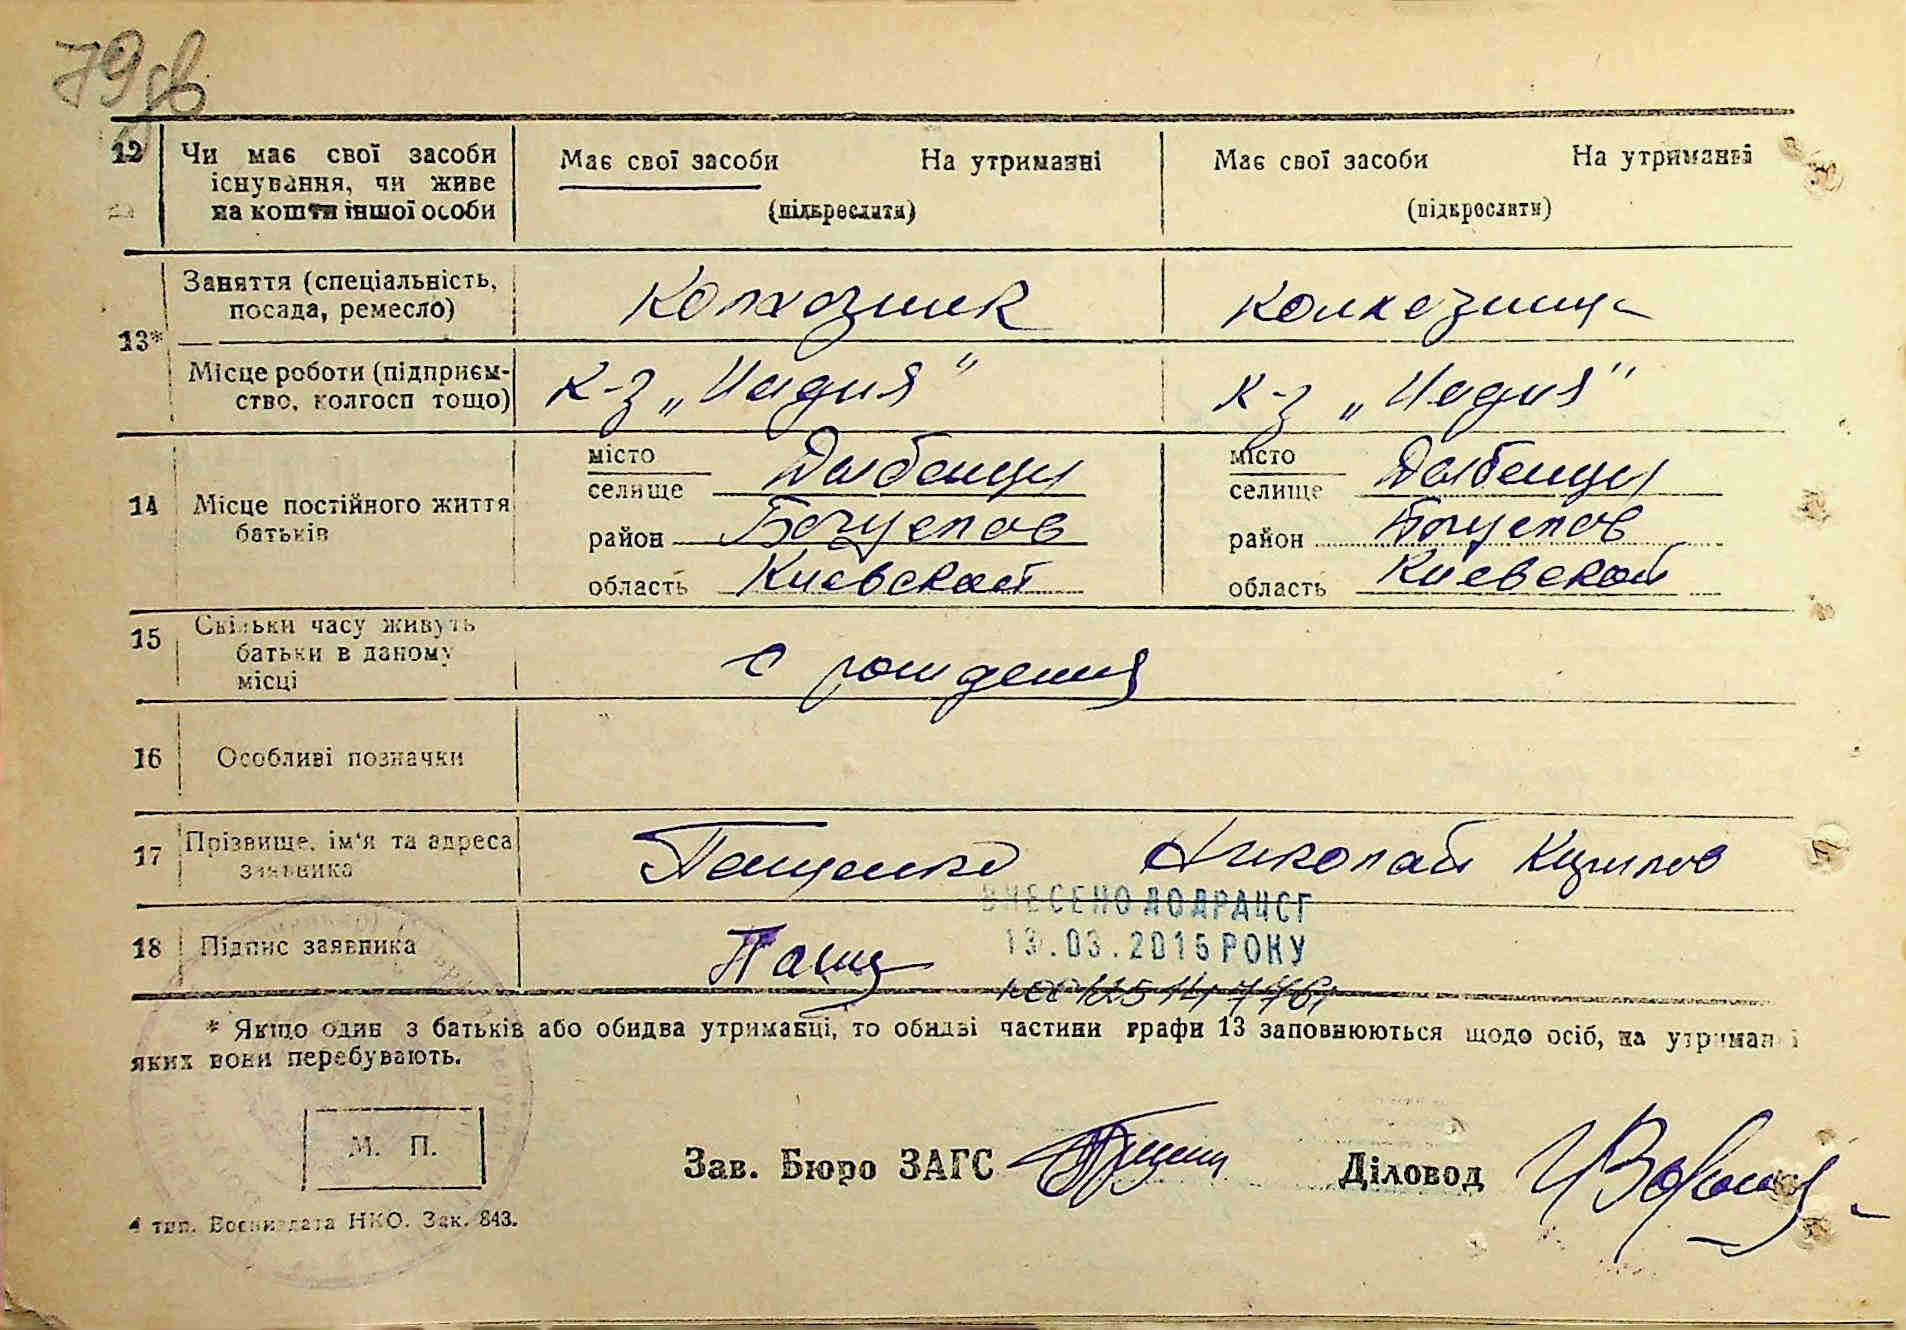 79 зв
12 Чи має свої засоби існування, чи живе на кошти іншої особи
Має свої засоби На утриманні
(підкреслити)
Має свої засоби На утриманні
(підкреслити)
13*
Заняття (спеціальність, посада, ремесло)
Колхозник
Колхозница
Місце роботи (підприємство, колгосп тощо)
к-з „Надия"
к-з „Надия"
14 Місце постійного життя батьків
місто
селище Дыбенцы
район Богуслов
область Киевской
місто
селище Дыбенцы
район Богуслов
область Киевской
15 Скільки часу живуть батьки в даному місці
с рождения
16 Особливі позначки
17 Прізвище, ім'я та адреса заявника
Пащенко Николай Кирилов
ВНЕСЕНО ДО ДРАЦСГ
13.03.2015 РОКУ
18 Підпис заявника
Пащ
* Якщо один з батьків або обидва утриманці, то обидві частини графи 13 заповнюються щодо осіб, на утриманні
яких вони перебувають.
М. П.
Зав. Бюро ЗАГС
Діловод
4 тип. Воениздата НКО. Зак. 843.